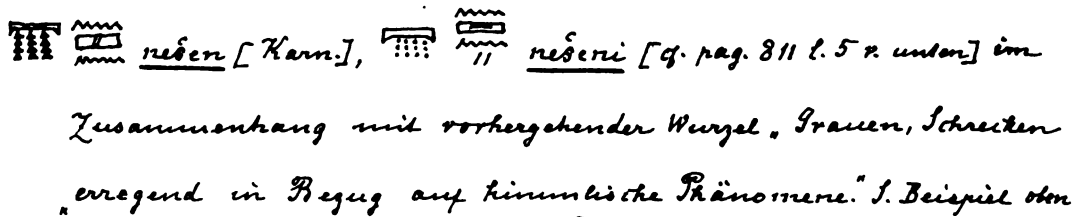 nešen [Karn.], nešeni [cf. pag. 811 l. 5 v. unten] im
Zusammenhang mit vorhergehender Wurzel „Grauen, Schrecken
„erregend in Bezug auf himmlische Phänomene.“ S. Beispiel oben